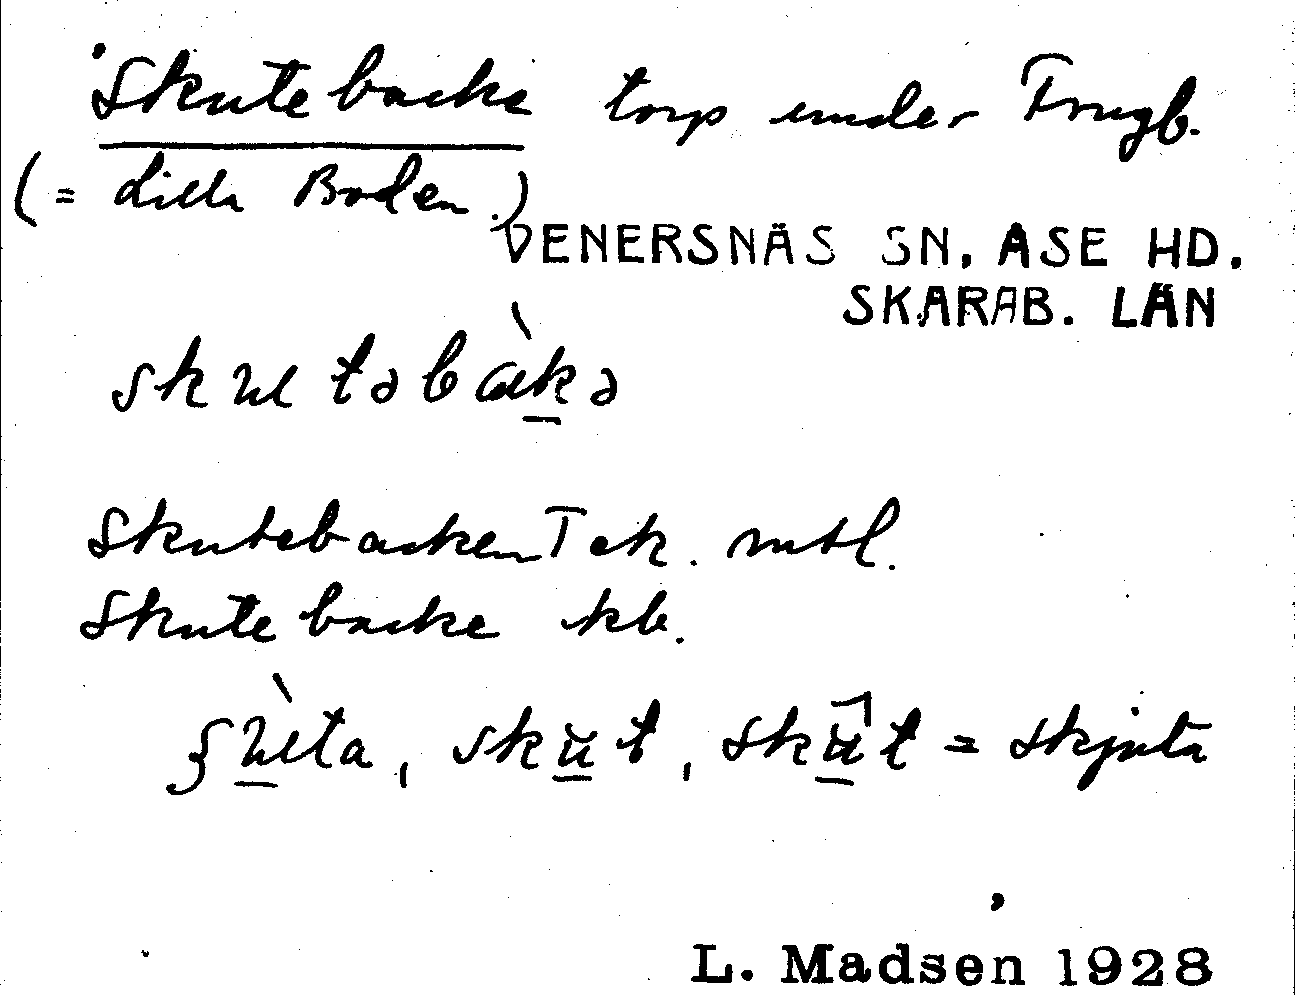 Skutebacke torp under Frugb.
(= Lilla Boden.)
VENERSNÄS SN, ASE HD.
SKARAB. LÄN
skutəbàkə
Skutebacken T ek. mtl.
Skutebacke kb.
ʂùta, skut, skut = skjuta
L. Madsen 1928